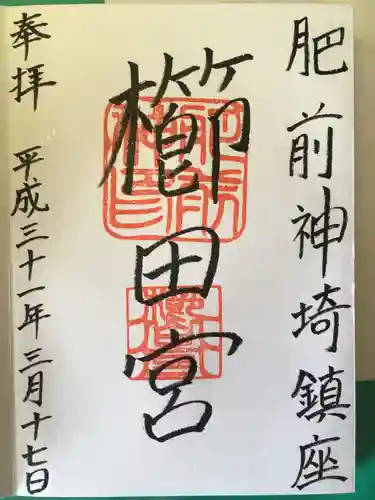 肥前神埼鎮座
櫛田宮
奉拝 平成三十一年三月十七日